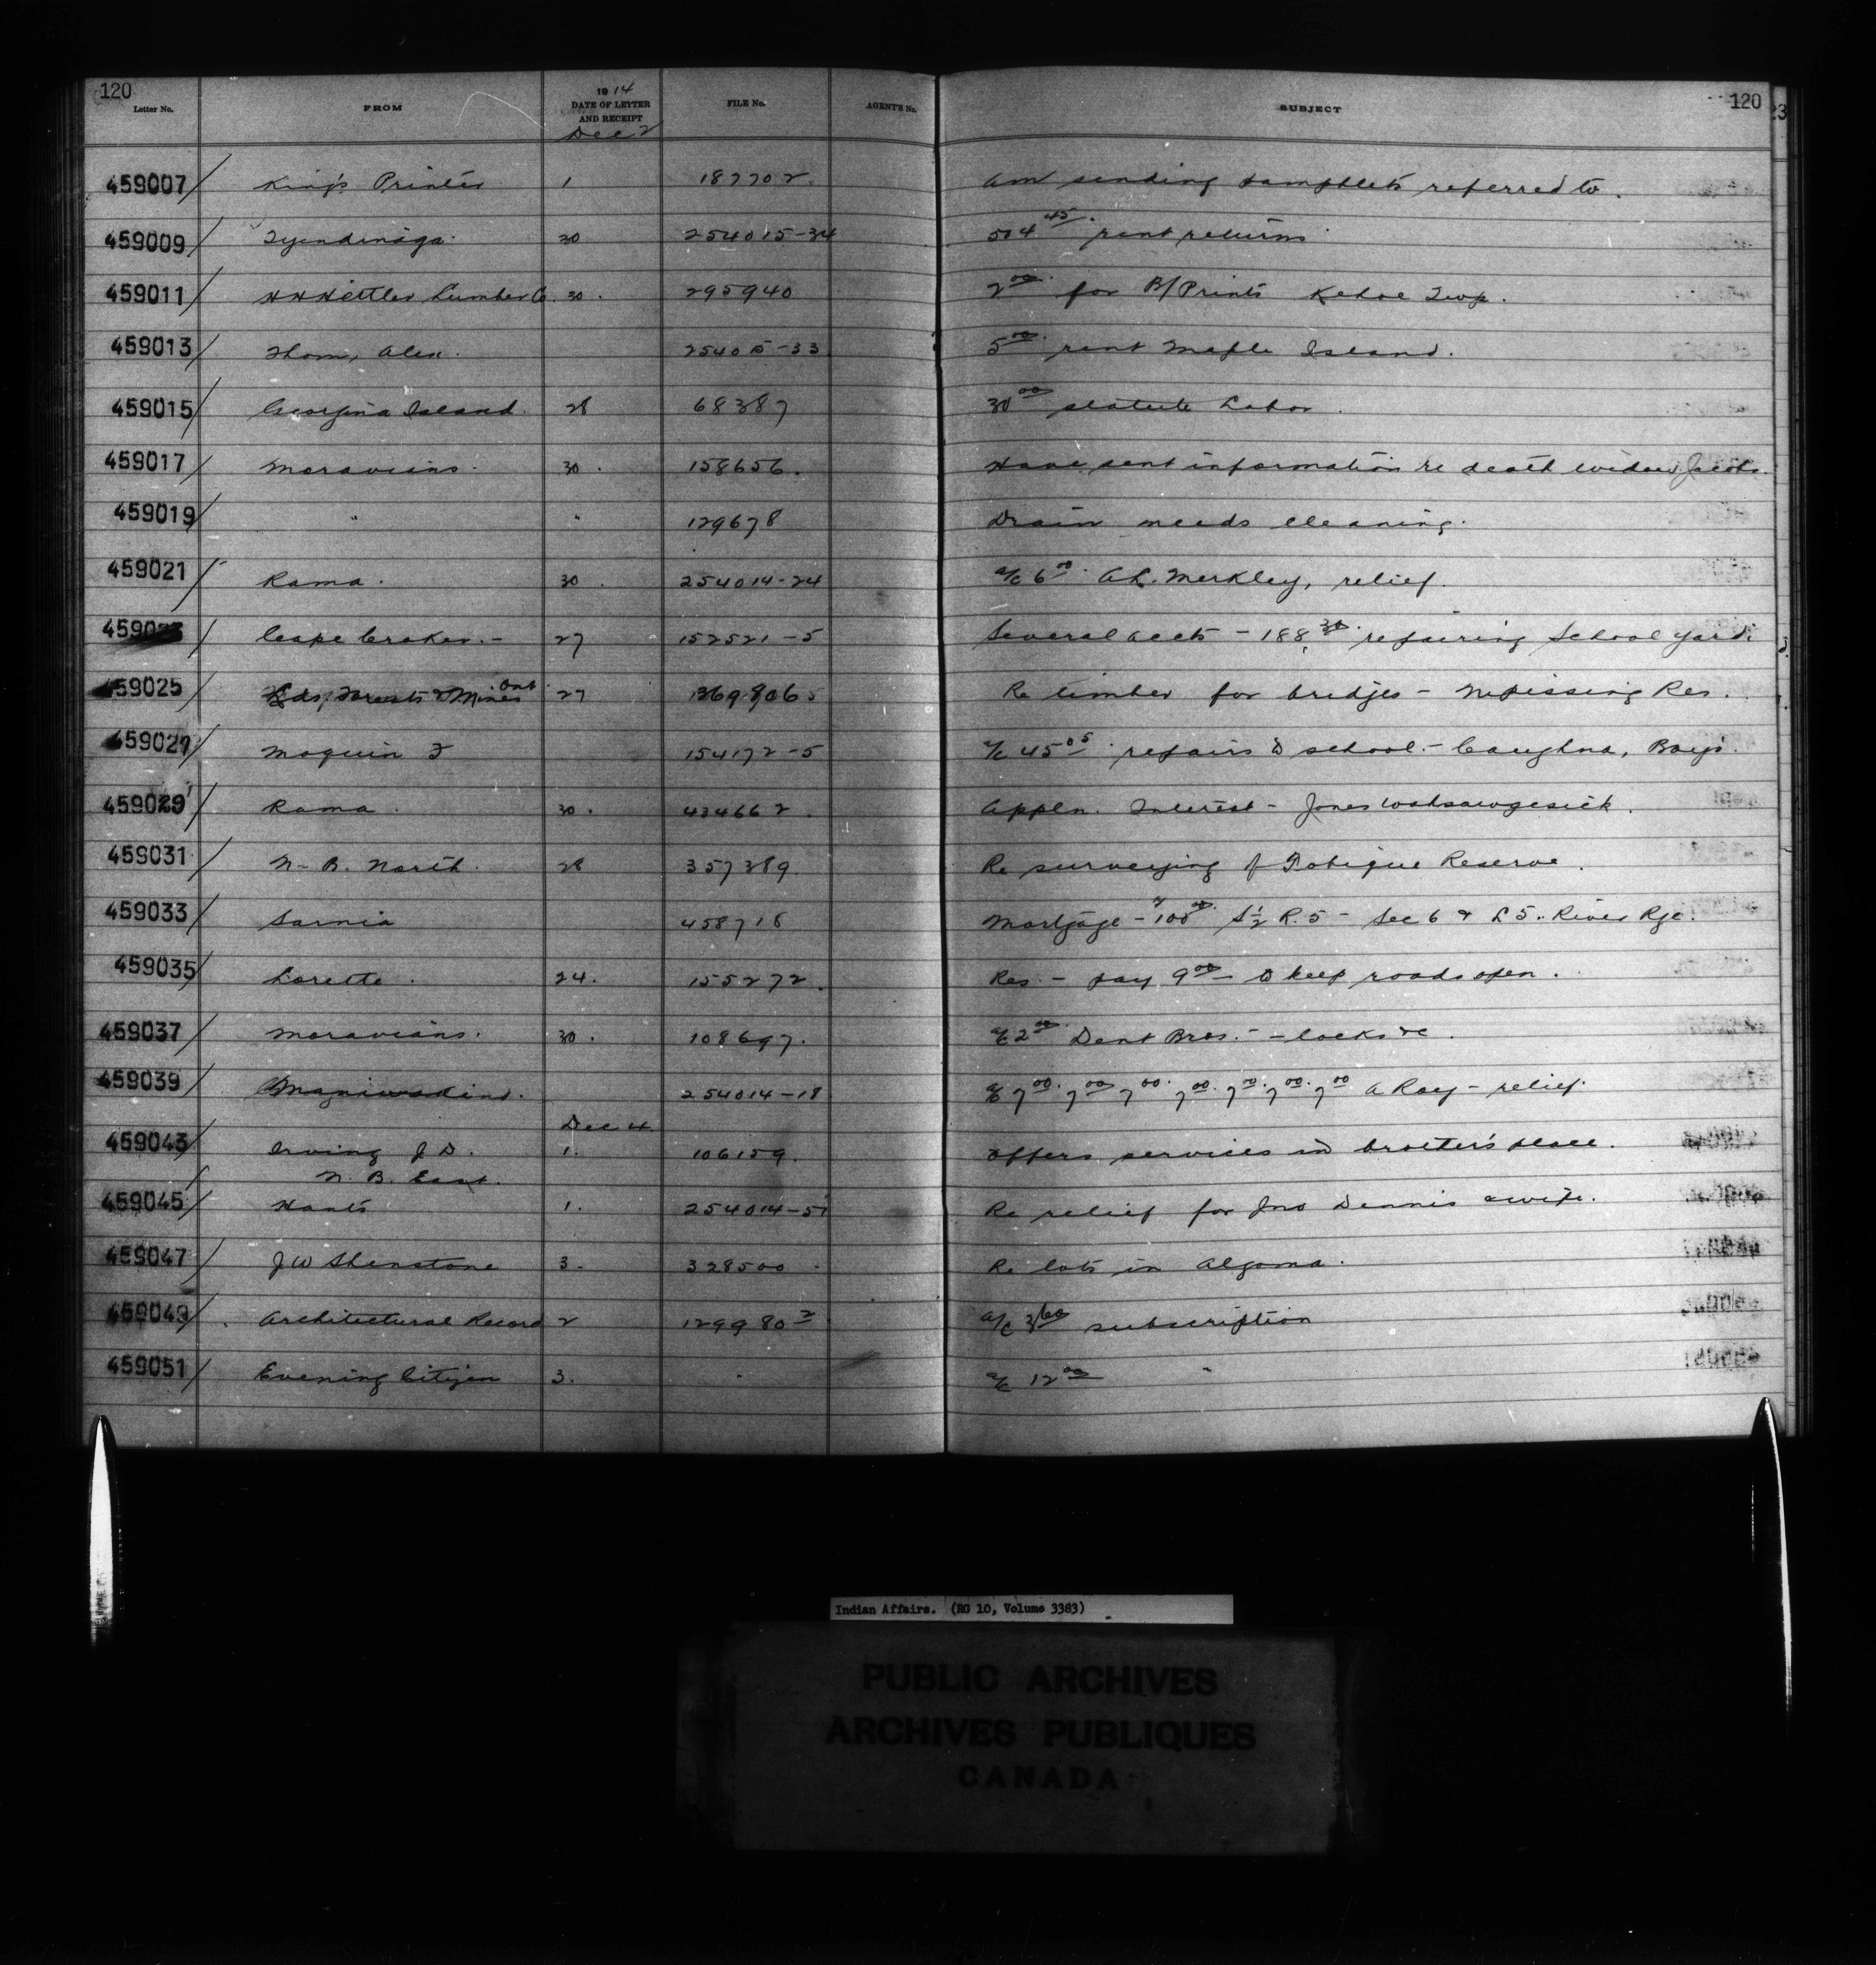 120 120
Letter No. FROM 1914 DATE OF LETTER AND RECEIPT FILE No. AGENT'S No. SUBJECT
Dec 2
459007 King's Printer 1 187702. Am sending pamphlets referred to.
459009 Tyendinaga 30 254015-34 504 45 rent returns
459011 Hettler Lumber Co. 30. 295940 2 00 for B/Prints Kehoe Twp.
459013 Thom, Alex. 25405-33 5 00 rent Maple Island.
459015 Georgina Island. 28 68387 30 00 statute Labor.
459017 Moravians. 30. 158656. Have sent information re death widow Jacobs.
459019 " " 129678 Drain needs cleaning.
459021 Rama. 30. 254014-24 a/c 6 00 A.L. Merkley, relief.
459023 Cape Croker.- 27 152521-5 Several accts - 188 30 repairing School yard.
459025 Lds, Forests & Mines Ont 27 Re timber for bridges - Nipissing Res.
459027 Moquin F 154172-5 a/c 45 05 repairs to school. - Caughna, Boys.
459029 Rama. 30. 434662. Appln. Interest - Jones
459031 N-B. North. 28 357389. Re surveying of Tobique Reserve.
459033 Sarnia 458718 Mortgage - 100 00 S½ R.5 - Sec 6 & L 5. River Rge.
459035 Lorette. 24. 155272. Res. - pay 9 00 to keep roads open.
459037 Moravians. 30. 108697. a/c 2 00 Dent Bros. - locks &c.
459039 Maniwaki. 254014-18 a/c 7 00 7 00 7 00 7 00 7 00 7 00 7 00 A Roy - relief.
Dec 4
459043 Irving J D. 1. 106159. Offers services in brother's place.
N. B. East.
459045 Hants 1. 254014-51 Re relief for Jno Dennis & wife.
459047 J W Shenstone 3. 328500 Re lots in Algoma.
459049 Architectural Record 2 129980-2 a/c 3 60 subscription
459051 Evening Citizen 3. " a/c 12 00 "
Indian Affairs. (RG 10, Volume 3383)
PUBLIC ARCHIVES
ARCHIVES PUBLIQUES
CANADA